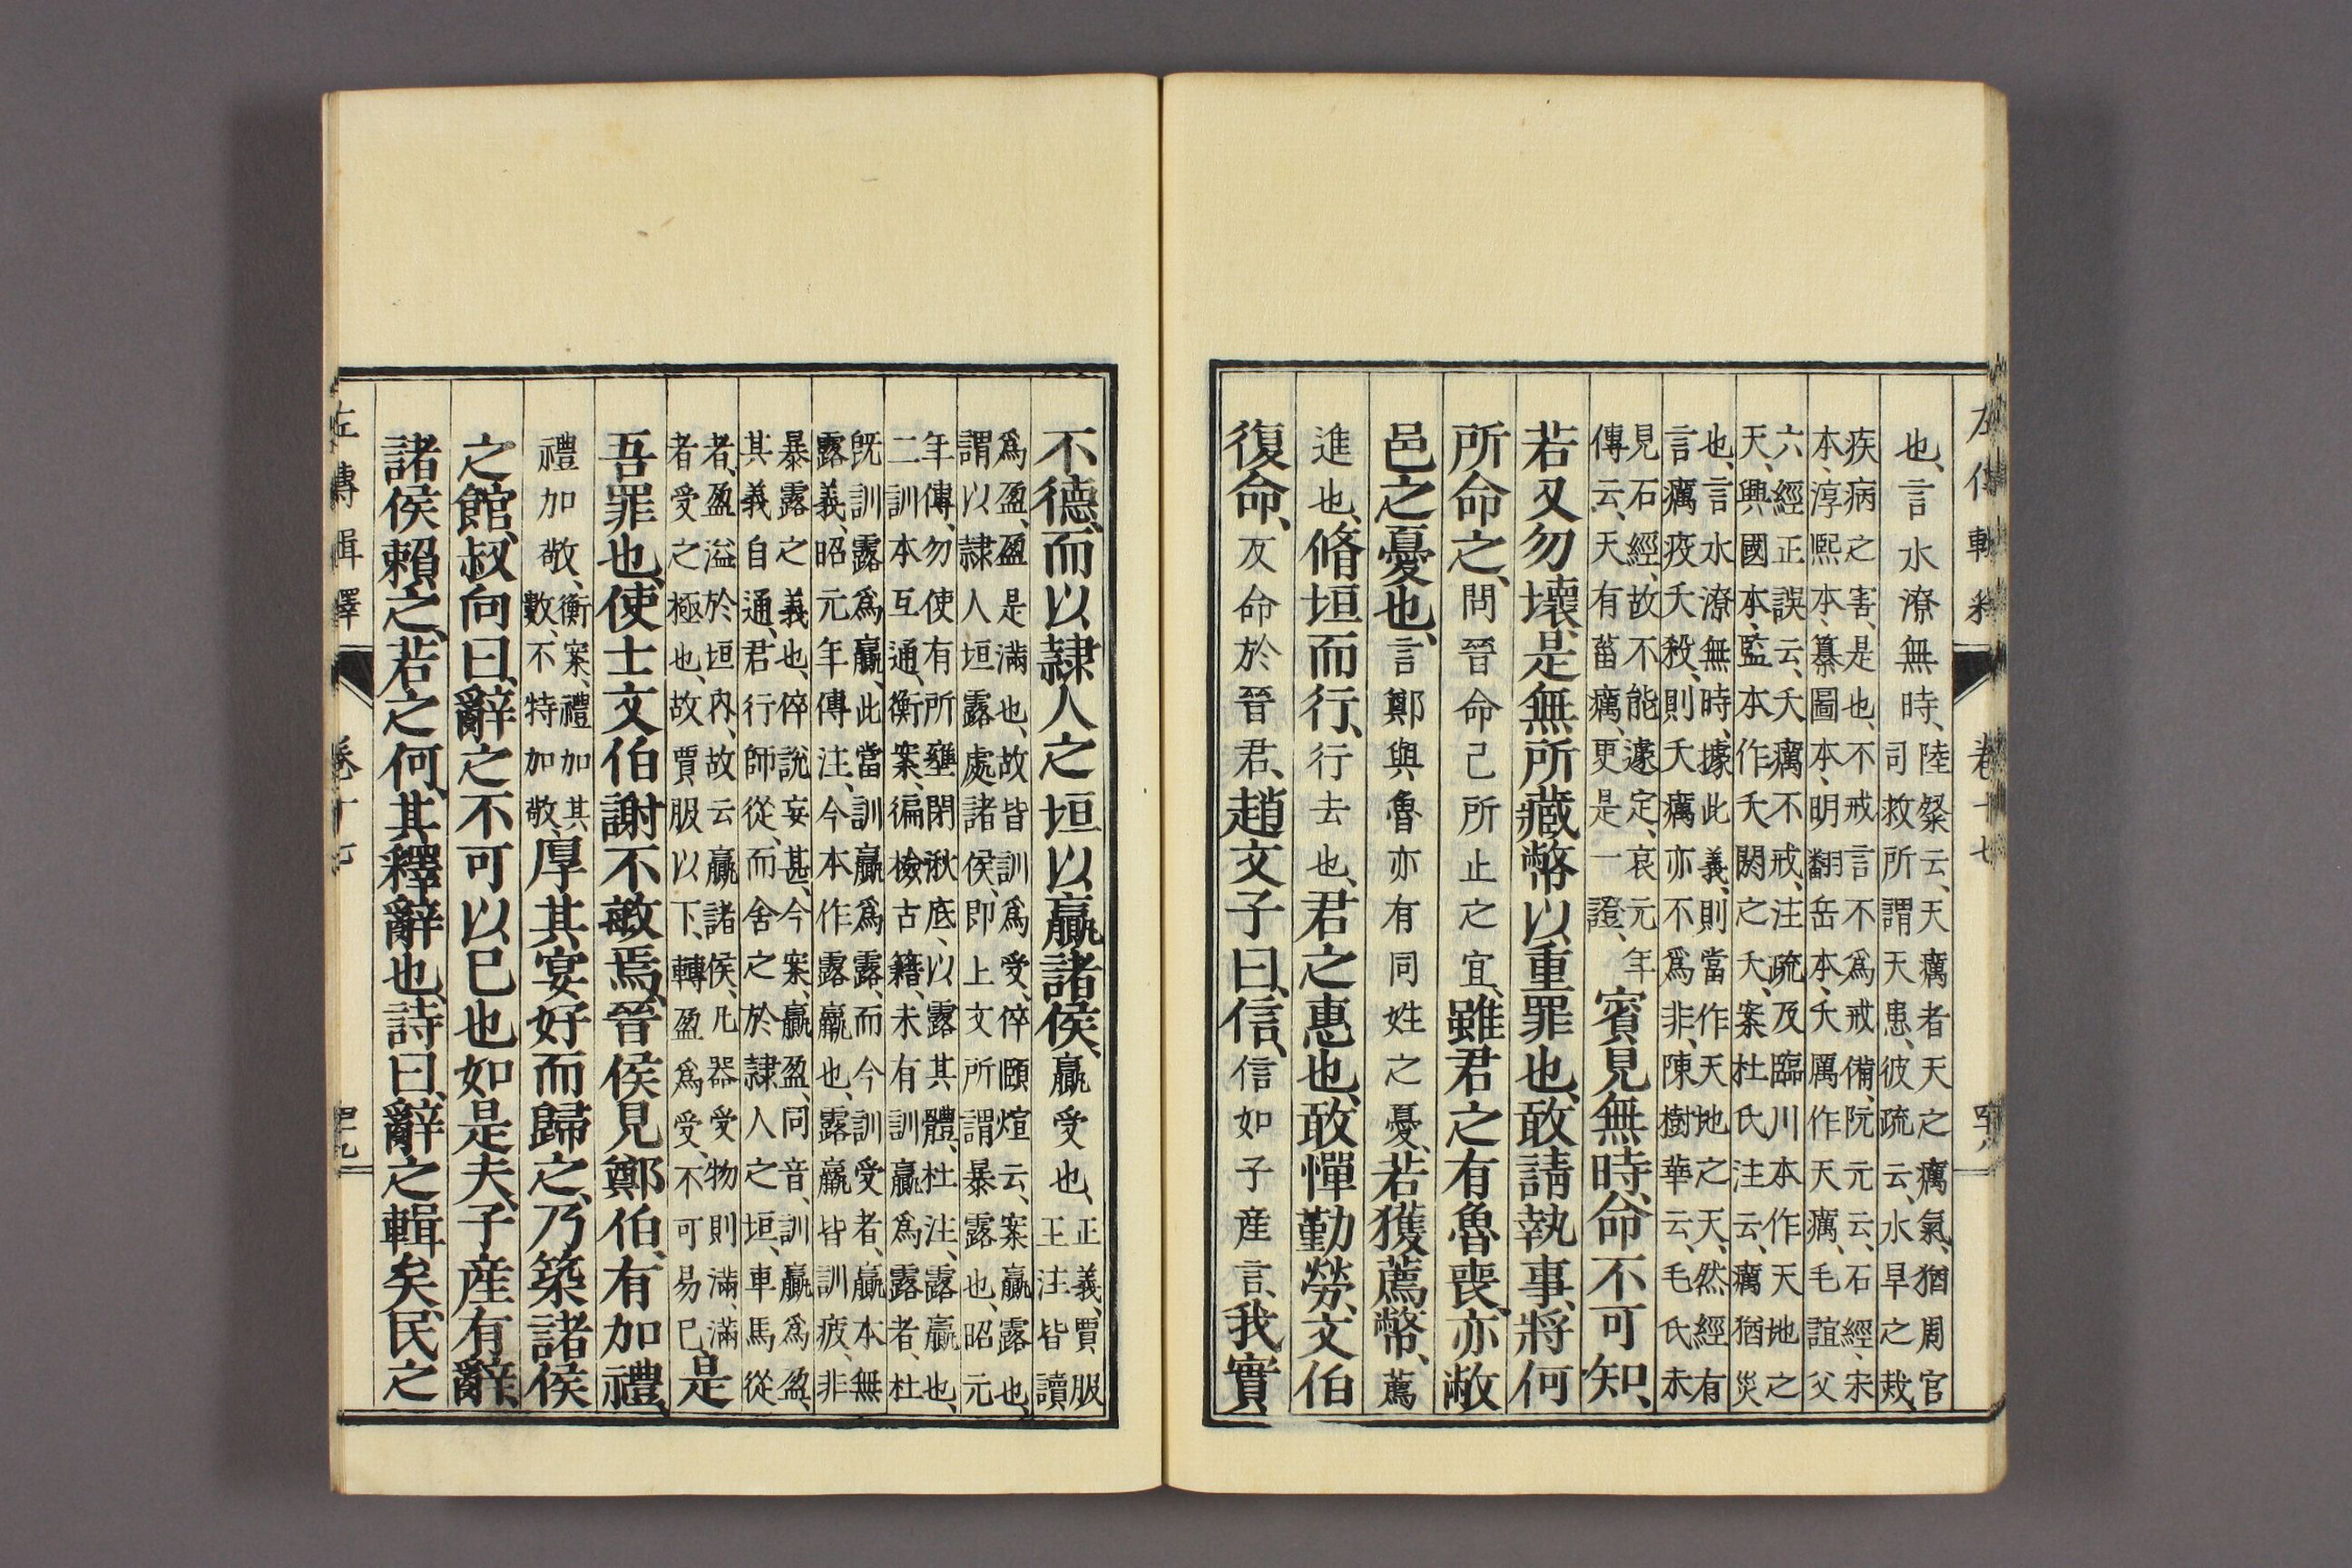 左傳輯釋 卷十七 四八
也、言水潦無時、陸粲云、天癘者天之癘氣、猶周官
司救所謂天患、彼疏云、水旱之烖、
疾病之害、是也、不戒言不爲戒備、阮元云、石經、宋
本、淳熙本、纂圖本、明翻岳本、夭厲作天癘、毛誼父
六經正誤云、夭癘不戒、注疏及臨川本作天地之
天、興國本、監本作夭閼之夭、案杜氏注云、癘猶災
也、言水潦無時、據此義、則當作天地之天、然經有
言癘疫夭殺、則夭癘亦不爲非、陳樹華云、毛氏未
見石經、故不能遽定、哀元年
傳云、天有菑癘、更是一證、
賓見無時、命不可知、
若又勿壞、是無所藏幣以重罪也、敢請執事、將何
所命之、問晉命己所止之宜、雖君之有魯喪、亦敝
邑之憂也、言鄭與魯亦有同姓之憂、若獲薦幣、薦
進也、脩垣而行、行去也、君之惠也、敢憚勤勞、文伯
復命、反命於晉君、趙文子曰、信、信如子産言、我實
不德、而以隷人之垣以贏諸侯、贏受也、正義、賈服
王注皆讀
爲盈、盈是滿也、故皆訓爲受、倅頤煊云、案贏露也、
謂以隷人垣露處諸侯、即上文所謂暴露也、昭元
年傳、勿使有所壅閉湫底、以露其體、杜注、露羸也、
二訓本互通、衡案、徧檢古籍、未有訓贏爲露者、杜
既訓露爲羸、此當訓贏爲露、而今訓受者、贏本無
露義、昭元年傳注、今本作露羸也、露羸皆訓疲、非
暴露之義也、倅說妄甚、今案、贏盈、同音、訓贏爲盈、
其義自通、君行師從、而舍之於隷人之垣、車馬從
者、盈溢於垣内、故云贏諸侯、凡器受物則滿、滿
者受之極也、故賈服以下、轉盈爲受、不可易已、
是
吾罪也、使士文伯謝不敏焉、晉侯見鄭伯、有加禮、
禮加敬、衡案、禮加其
數、不特加敬、厚其宴好而歸之、乃築諸侯
之館、叔向曰、辭之不可以已也如是夫、子産有辭、
諸侯賴之、若之何、其釋辭也、詩曰、辭之輯矣、民之
左傳輯釋 卷十七 四九